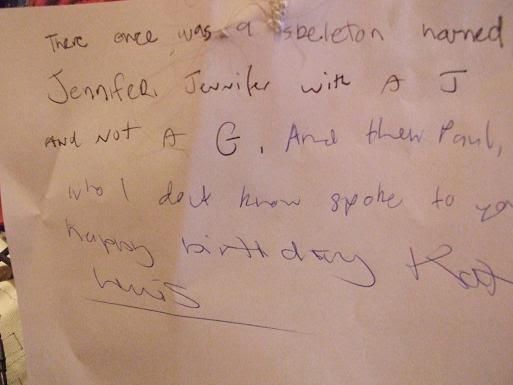 There once was a skeleton named
Jennifer. Jennifer with A J
AND NOT A G. And then Paul,
who I dont know spoke to yo
happy birthday Kat